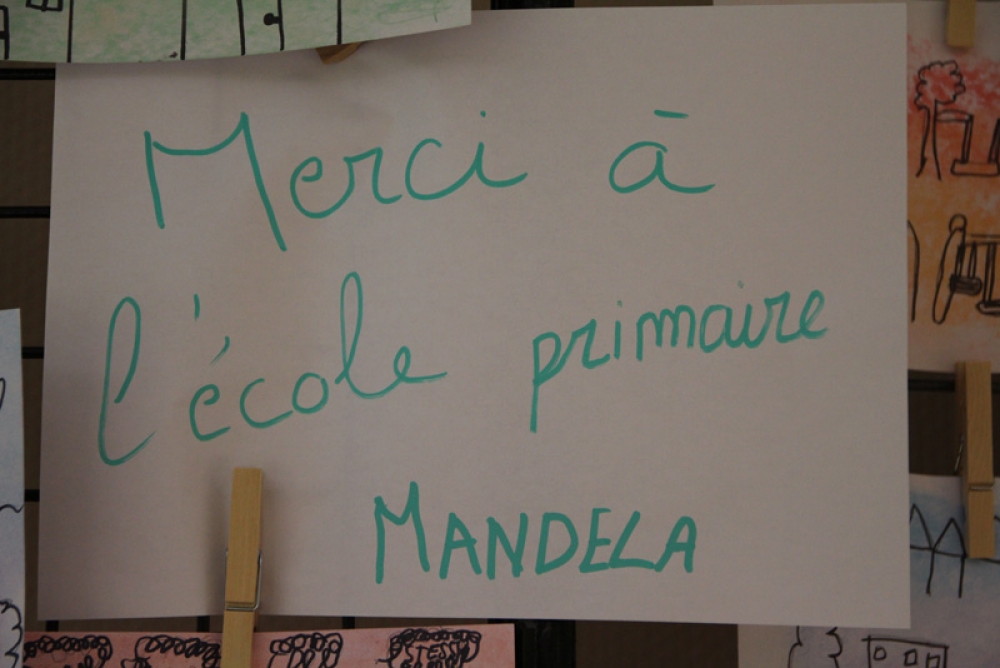 Merci à
l'école primaire
MANDELA